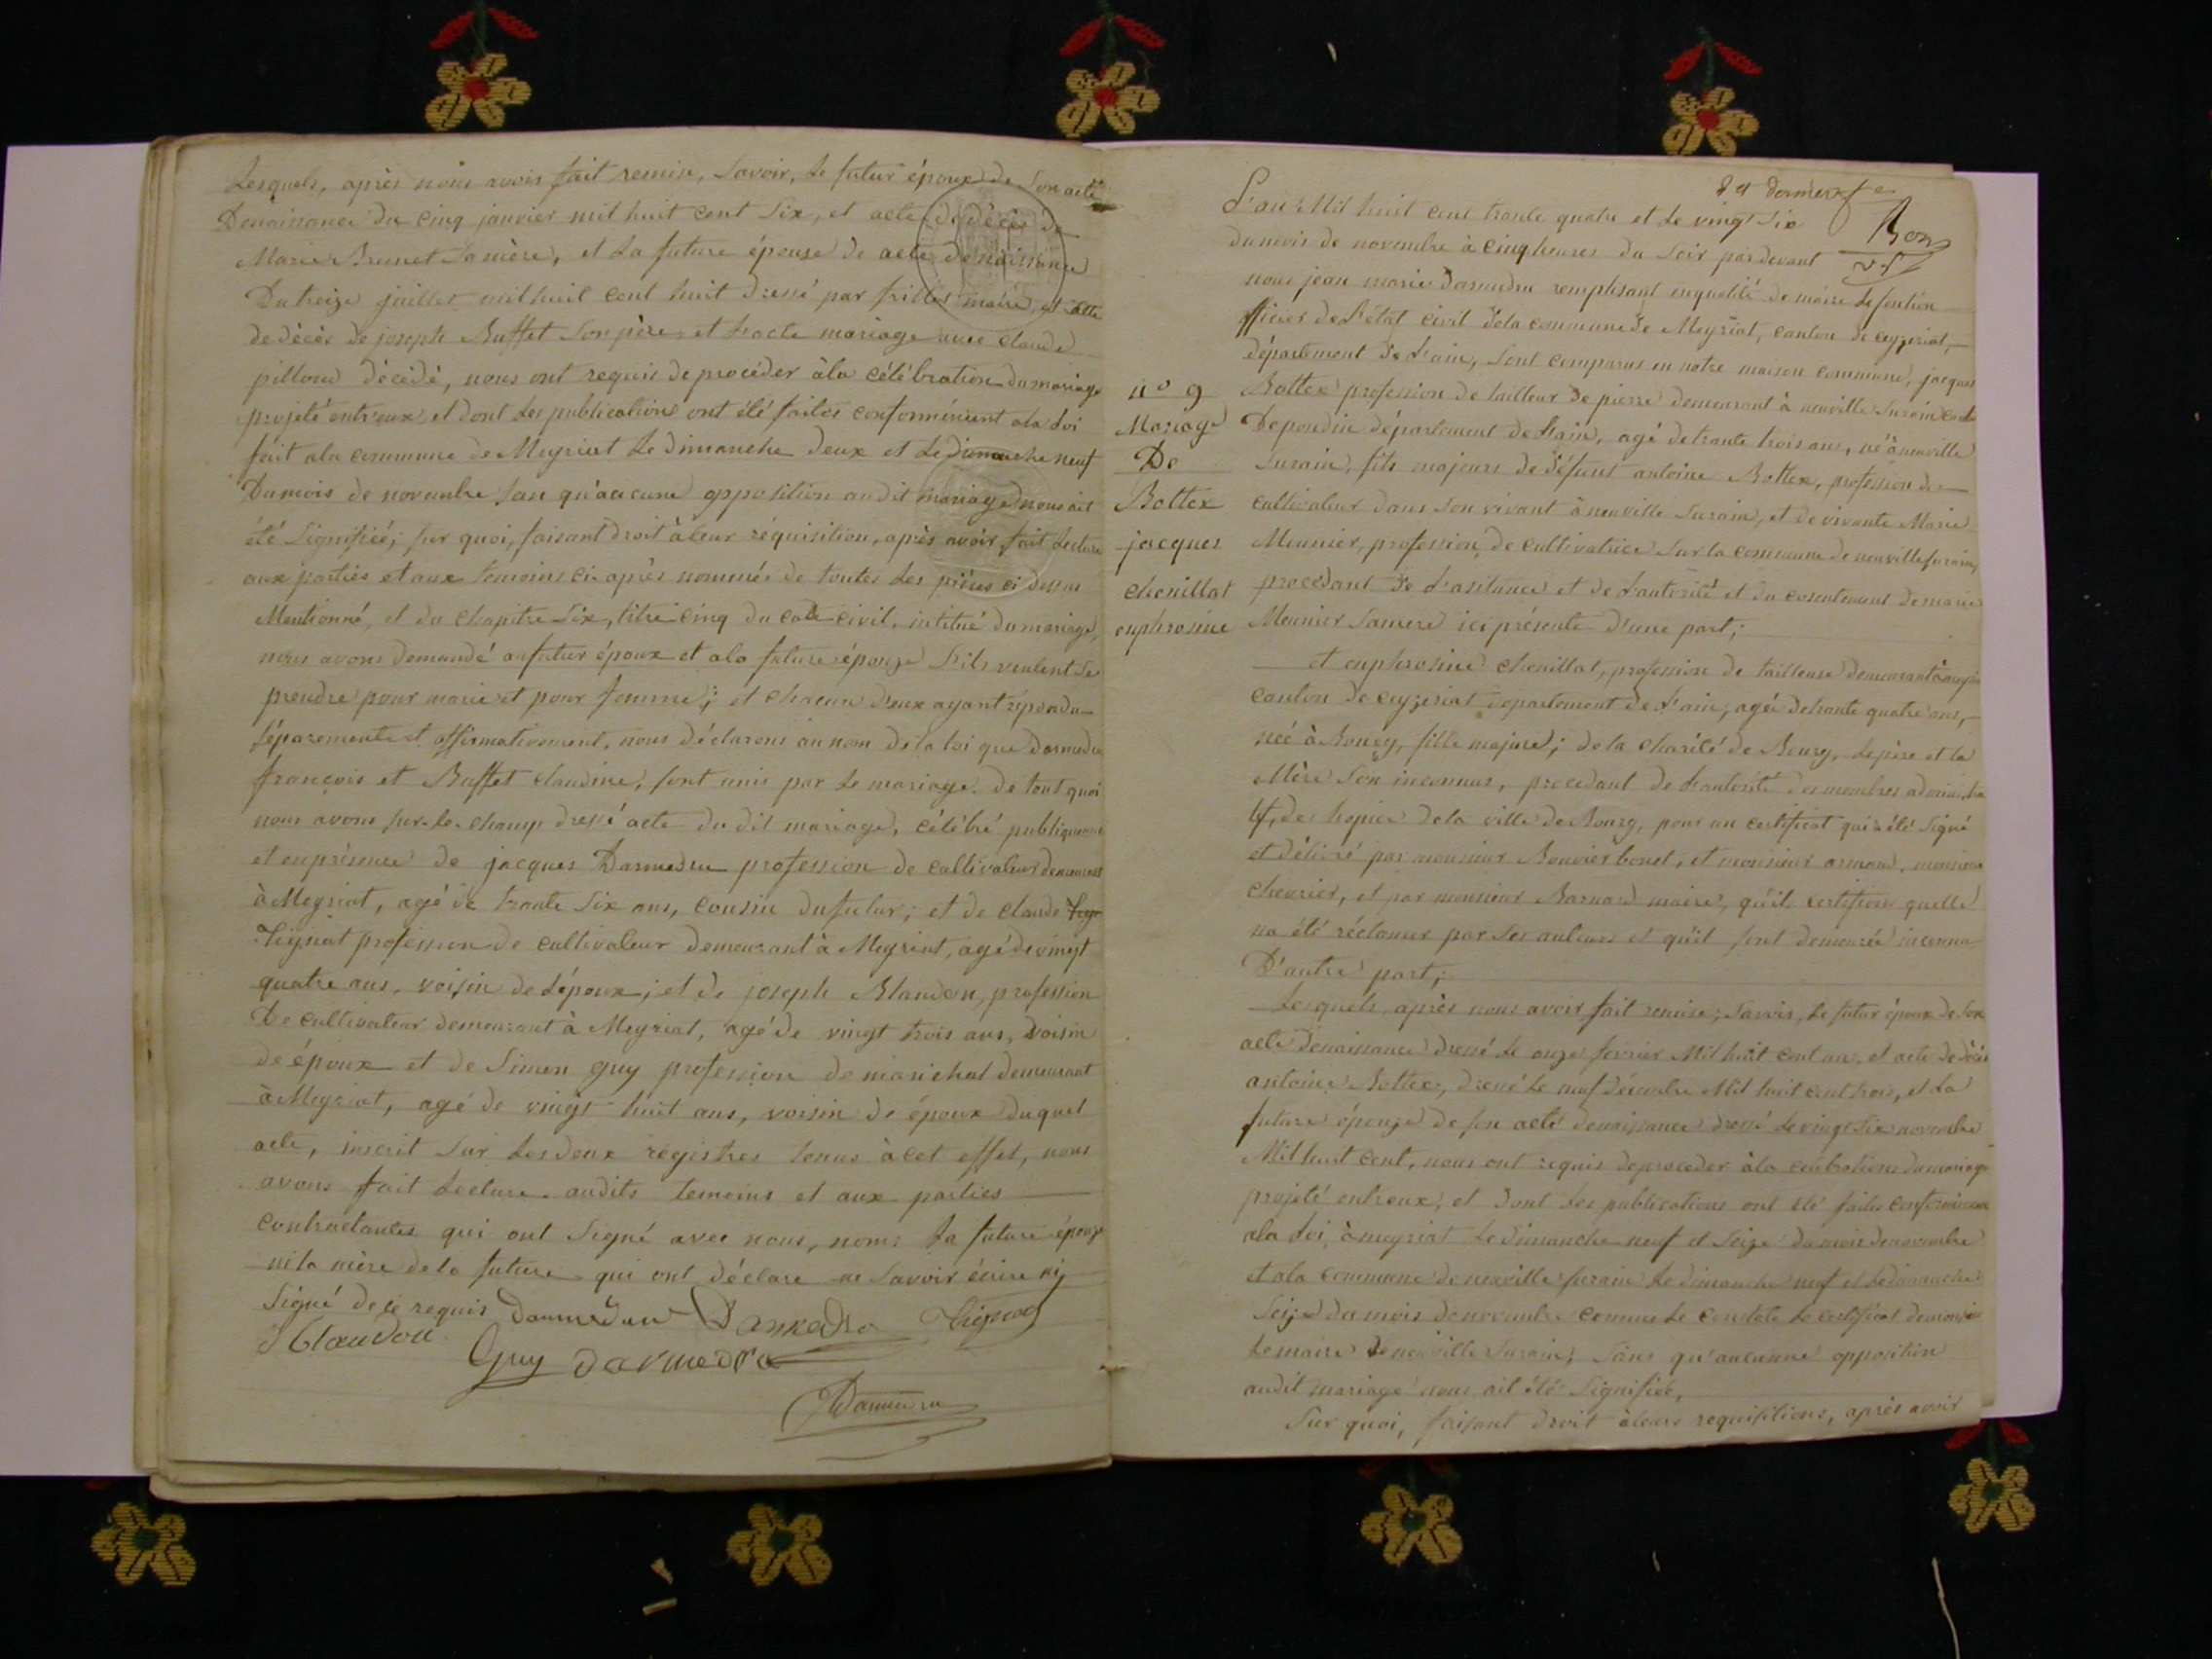 Lesquels, après nous avoir fait remise, Savoir, Le futur époux de Son acte
Denaissance du cinq janvier mil huit cent Six, et acte de décès de
Marie Brunet Samère, et La future épouse de acte denaissance
Du treize juillet mil huit cent huit dressé par maire, et acte
de décès de joseph Buffet Son père, et d'acte mariage avec claude
pilloud décédé, nous ont requis de procéder àla célébration dumariage
projeté entr'eux, et dont Les publications ont été faites conformément ala Loi
fait ala commune de Meyriat Le dimanche deux et Le dimanche neuf
Dumois de novembre Sans qu'aucune opposition audit mariage nous ait
été Signifiée; Sur quoi, faisant droit àleur réquisition, après avoir fait Lecture
aux parties et aux temoins ci-après nommés de toutes Les pièces ci dessus
Mentionné, et du chapitre Six, titre cinq du code civil, intitué du mariage,
nous avons demandé au futur époux et ala future épouze S'ils veulent Se
prendre pour marie et pour femme; et chacun d'eux ayant répondu
Séparement et affirmativement, nous déclarons au nom de la Loi que Darmedru
françois et Buffet claudine, Sont unis par Le mariage. De tout quoi
nous avons Sur-Le-champ dressé acte du dit mariage, célébré publiquement
et enprésence de jacques Darmedru profession de cultivateur demeurant
à Meyriat, agé de trante Six ans, cousin dufutur; et de claude
Tignat profession de cultivateur demeurant à Meyriat, agé de vingt
quatre ans, voisin de L'époux; et de joseph Blandon, profession
De cultivateur demeurant à Meyriat, agé de vingt trois ans, voisin
de époux et de Simon guy profession de marichal demeurant
à Meyriat, agé de vingt huit ans, voisin de époux duquel
acte, inscrit Sur Les deux régistres tenus àcet effet, nous
avons fait Lecture audits temoins et aux parties
contractantes qui ont Signé avec nous, nom: La future épouze
ni La mère de la future qui ont déclare ne Savoir écrire ni
Signé de ce requis Darmedru Darmedru Tignat
J Blandon
Guy Darmedru
Darmedru
L'an Mil huit cent trante quatre et Le vingt Six
dumois de novembre à cinq heures du Soir pardevant
nous jean marie Darmedru remplisant enqualité de maire Le fontion
officier de L'état civil dela commune de Meyriat, canton de ceyzeriat,
département de L'ain, Sont comparus en notre maison commune, jacques
n° 9
Mariage
De
Bottex
jacques
chenillat
euphrosine
Bottex profession de tailleur de pierre demeurant à neuville Surain canton
Depondin département de L'ain, agé de trante trois ans, né à neuville
Surain, fils majeurs de défunt antoine Bottex, profession de
cultivateur dans Son vivant à neuville Surain, et de vivante Marie
Meunier, profession de cultivatrice Sur la commune de neuville Surain,
procédant de L'asitance et de L'autorité et du cosentement de marie
Meunier Samere ici présente d'une part;
et euphrosine chenillat, profession de tailleuse demeurant
canton de ceyzeriat departement de L'ain, agée detrante quatre ans,
née à Bourg, fille majure; de la charité de Bourg, Le père et la
Mère Son inconnus, procedant de L'autorité des membres
des hopice de la ville de Bourg, pour un certificat qui a été Signé
et délivré par monsieur Bouvier bonet, et monsieur armand, monsieur
chevrier, et par monsieur Barnard maire, qu'ils certifient quelle
na été réclamer par Ses auteurs et qu'il Sont demeurée inconnu
D'autre part;
Lesquels, après nous avoir fait remise; Savoir, Le futur époux de Son
acte denaissance dressé Le onze fevrier Mil huit cent un, et acte de décès
antoine Bottex, dressé Le neuf décembre Mil huit cent trois, et La
future épouze de Son acte denaissance dressé Le vingt Six novembre
Mil huit cent, nous ont requis deproceder àla du mariage
projeté entreux, et dont Les publications ont été faites conformément
ala Loi, à meyriat Le dimanche neuf et Seize du mois denovembre
et ala commune de neuville Surain Le dimanche neuf et Ledimanche
Seize du mois denovembre comme Le constate Le certificat de monsieur
Le maire de neuville Surain, Sans qu'aucunne opposition
audit mariage nous ait été Signifiée,
Sur quoi, faisant droit àleurs requisitions, après avoir